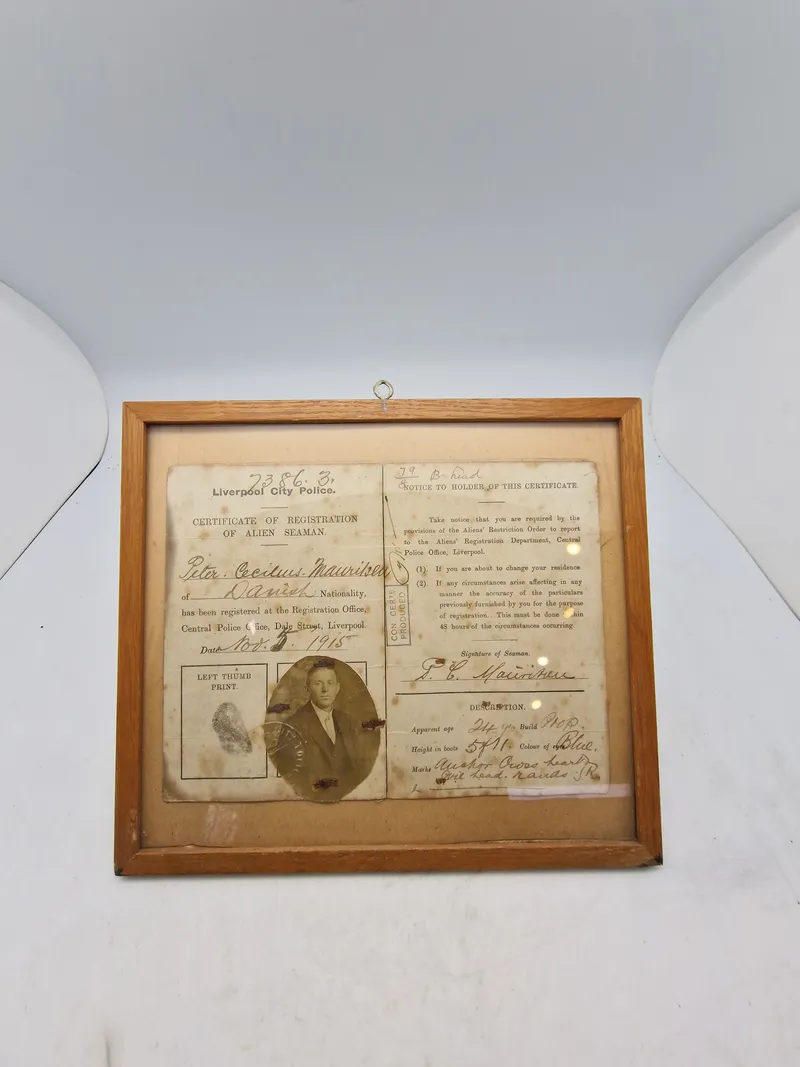 7386. 3.
Liverpool City Police.
CERTIFICATE OF REGISTRATION
OF ALIEN SEAMAN.
Peter. Cecilius. Mauritzen
of Danish Nationality,
has been registered at the Registration Office,
Central Police Office, Dale Street, Liverpool.
Date Nov. 5. 1915
LEFT THUMB
PRINT.
B. head
NOTICE TO HOLDER OF THIS CERTIFICATE.
Take notice that you are required by the
provisions of the Aliens' Restriction Order to report
to the Aliens' Registration Department, Central
Police Office, Liverpool.
(1) If you are about to change your residence
(2). If any circumstances arise affecting in any
manner the accuracy of the particulars
previously furnished by you for the purpose
of registration. This must be done
48 hours of the circumstances occurring
CON CERTS
PRODUCED
Signature of Seaman.
P. C. Mauritzen
DESCRIPTION.
Apparent age 24 Build Prop.
Height in boots 5ft 11. Colour of Blue.
Marks Anchor Cross heart
head. hands.